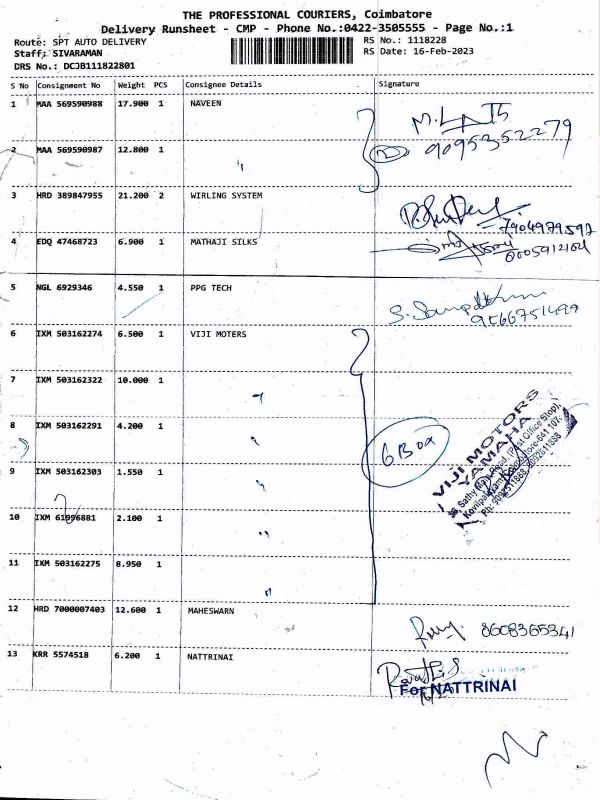 THE PROFESSIONAL COURIERS, Coimbatore
Delivery Runsheet - CMP - Phone No.:0422-3505555 - Page No.:1
Route: SPT AUTO DELIVERY RS No.: 1118228
Staff: SIVARAMAN RS Date: 16-Feb-2023
DRS No.: DCJB111822801
S No Consignment No Weight PCS Consignee Details Signature
1 MAA 569590988 17.900 1 NAVEEN
9095352279
2 MAA 569590987 12.800 1 "
2
3 HRD 389847955 21.200 2 WIRLING SYSTEM
7904979597
4 EDQ 47468723 6.900 1 MATHAJI SILKS
5 NGL 6929346 4.550 1 PPG TECH
9566751499
6 IXM 503162274 6.500 1 VIJI MOTERS
7 IXM 503162322 10.000 1 "
8 IXM 503162291 4.200 1 "
6 Box
VIJI MOTORS
YAMAHA
9 IXM 503162303 1.550 1 "
10 IXM 61096881 2.100 1 "
11 IXM 503162275 8.950 1 "
12 HRD 7000007403 12.600 1 MAHESWARN
8608365341
13 KRR 5574518 6.200 1 NATTRINAI
For NATTRINAI